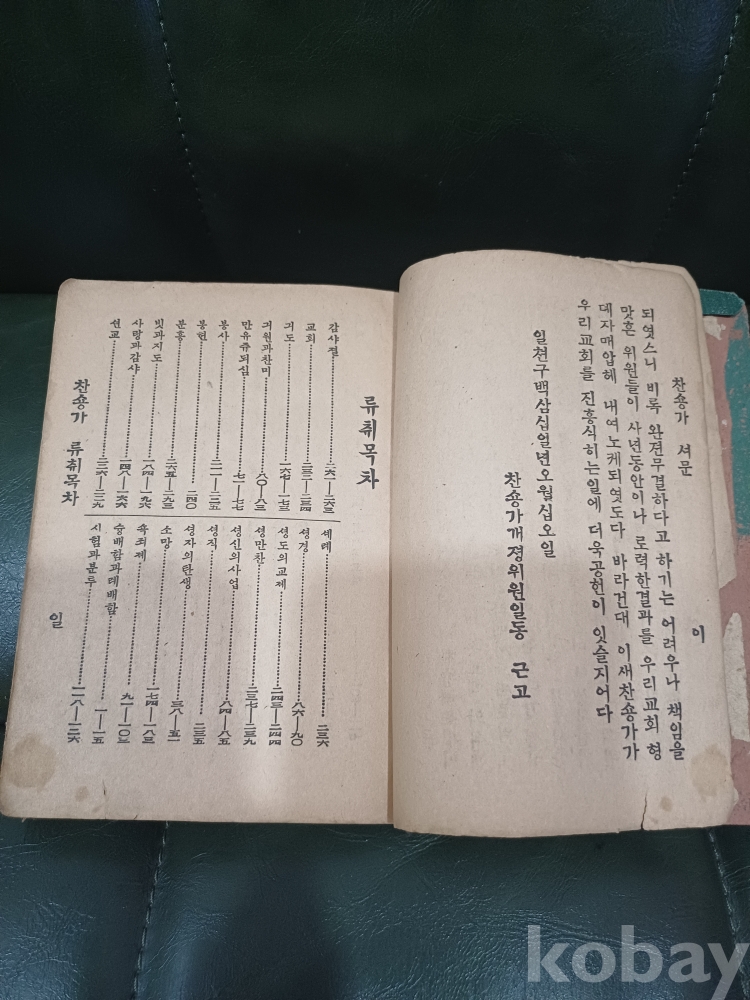 찬숑가 셔문 이
되엿스니 비록 완젼무결하다고 하기는 어려우나 책임을
맛흔 위원들이 사년동안이나 로력한결과를 우리교회 형
뎨자매압헤 내여노케되엿도다 바라건대 이새찬숑가가
우리교회를 진흥식히는일에 더욱공헌이 잇슬지어다
일쳔구백삼십일년오월십오일
찬숑가개졍위원일동 근고
류취목차
감샤졀 二六一—二六三
교회 二三二—二三四
긔도 一六七—一七三
긔원과찬미 八〇—八三
만유쥬되심 七一—七七
봉사 二二一—二二五
봉헌 二四〇
분흥 二六五—二九三
빗과지도 一八四—一九六
사랑과감샤 一四八—一六六
션교 三一六—三二九
셰례 二三六
셩경 八六—九〇
셩도의교제 二四三—二四四
셩만찬 二三七—二三九
셩신의사업 八四—八五
셩직 二三五
셩자의탄생 三八—五一
소망
속죄제 一七四—一八三
숭배함과례배함 九一—一〇三
시작 一—一五
시험과분투 一一八—一二六
찬숑가 류취목차 일
kobay